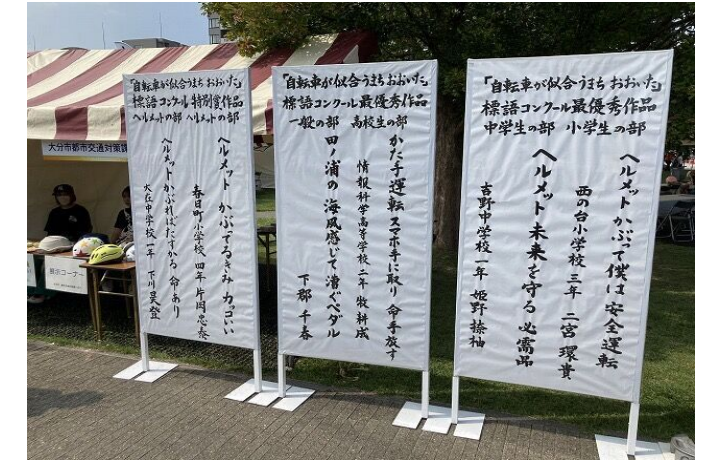 「自転車が似合うまち おおいた」
標語コンクール 特別賞作品
ヘルメットの部 ヘルメットの部
ヘルメット かぶてるきみ カッコいい
春日町小学校 四年 片岡 忠泰
ヘルメット かぶればたすかる 命あり
大在中学校 一年 下川 昊登
「自転車が似合うまち おおいた」
標語コンクール 最優秀作品
一般の部 高校生の部
かた手運転 スマホ手に取り 命手放す
情報科学高等学校 二年 牧 耕成
田ノ浦の 海風感じて 漕ぐペダル
下郡 千春
「自転車が似合うまち おおいた」
標語コンクール 最優秀作品
中学生の部 小学生の部
ヘルメット かぶって僕は 安全運転
西の台小学校 三年 二宮 環貴
ヘルメット 未来を守る 必需品
吉野中学校 一年 姫野 捺柚
大分市都市交通対策課
展示コーナー